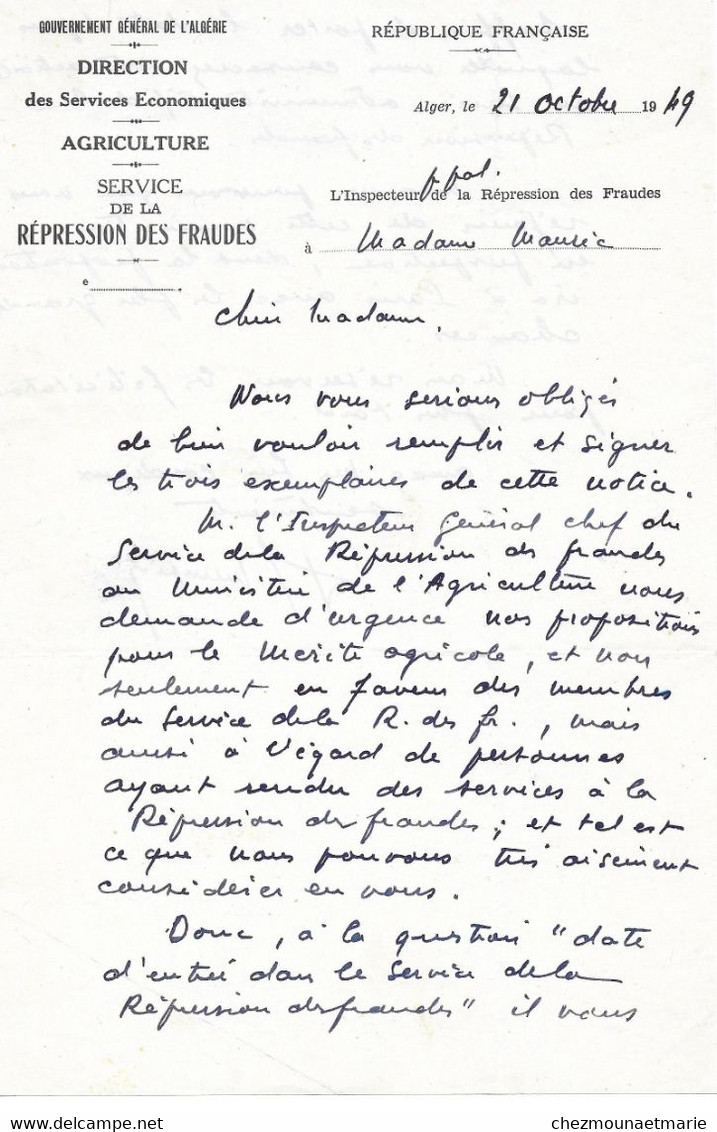 GOUVERNEMENT GÉNÉRAL DE L'ALGÉRIE
DIRECTION
des Services Economiques
AGRICULTURE
SERVICE
DE LA
RÉPRESSION DES FRAUDES
e
RÉPUBLIQUE FRANÇAISE
Alger, le 21 Octobre 1949
ppal.
L'Inspecteur de la Répression des Fraudes
à Madame
Chère Madame,
Nous vous serions obligés
de bien vouloir remplir et signer
les trois exemplaires de cette notice.
M. l'Inspecteur Général chef du
Service de la Répression des fraudes
au Ministère de l'Agriculture nous
demande d'urgence nos propositions
pour le Mérite agricole, et non
seulement en faveur des membres
du Service de la R. des fr., mais
aussi à l'égard de personnes
ayant rendu des services à la
Répression des fraudes ; et tel est
ce que nous pouvons très aisément
considérer en vous.
Donc, à la question "date
d'entrée dans le Service de la
Répression des fraudes" il vous
chezmounaetmarie